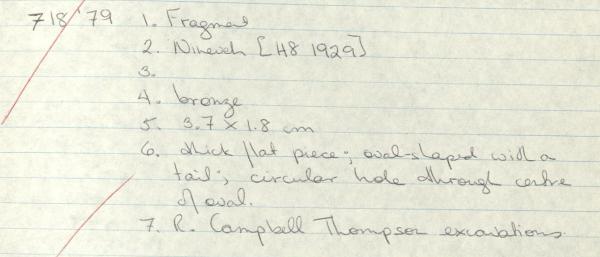 718 '79 1. Fragment
2. Nineveh [H8 1929]
3.
4. bronze
5. 3.7 x 1.8 cm
6. thick flat piece; oval-shaped with a
tail; circular hole through centre
of oval.
7. R. Campbell Thompson excavations.